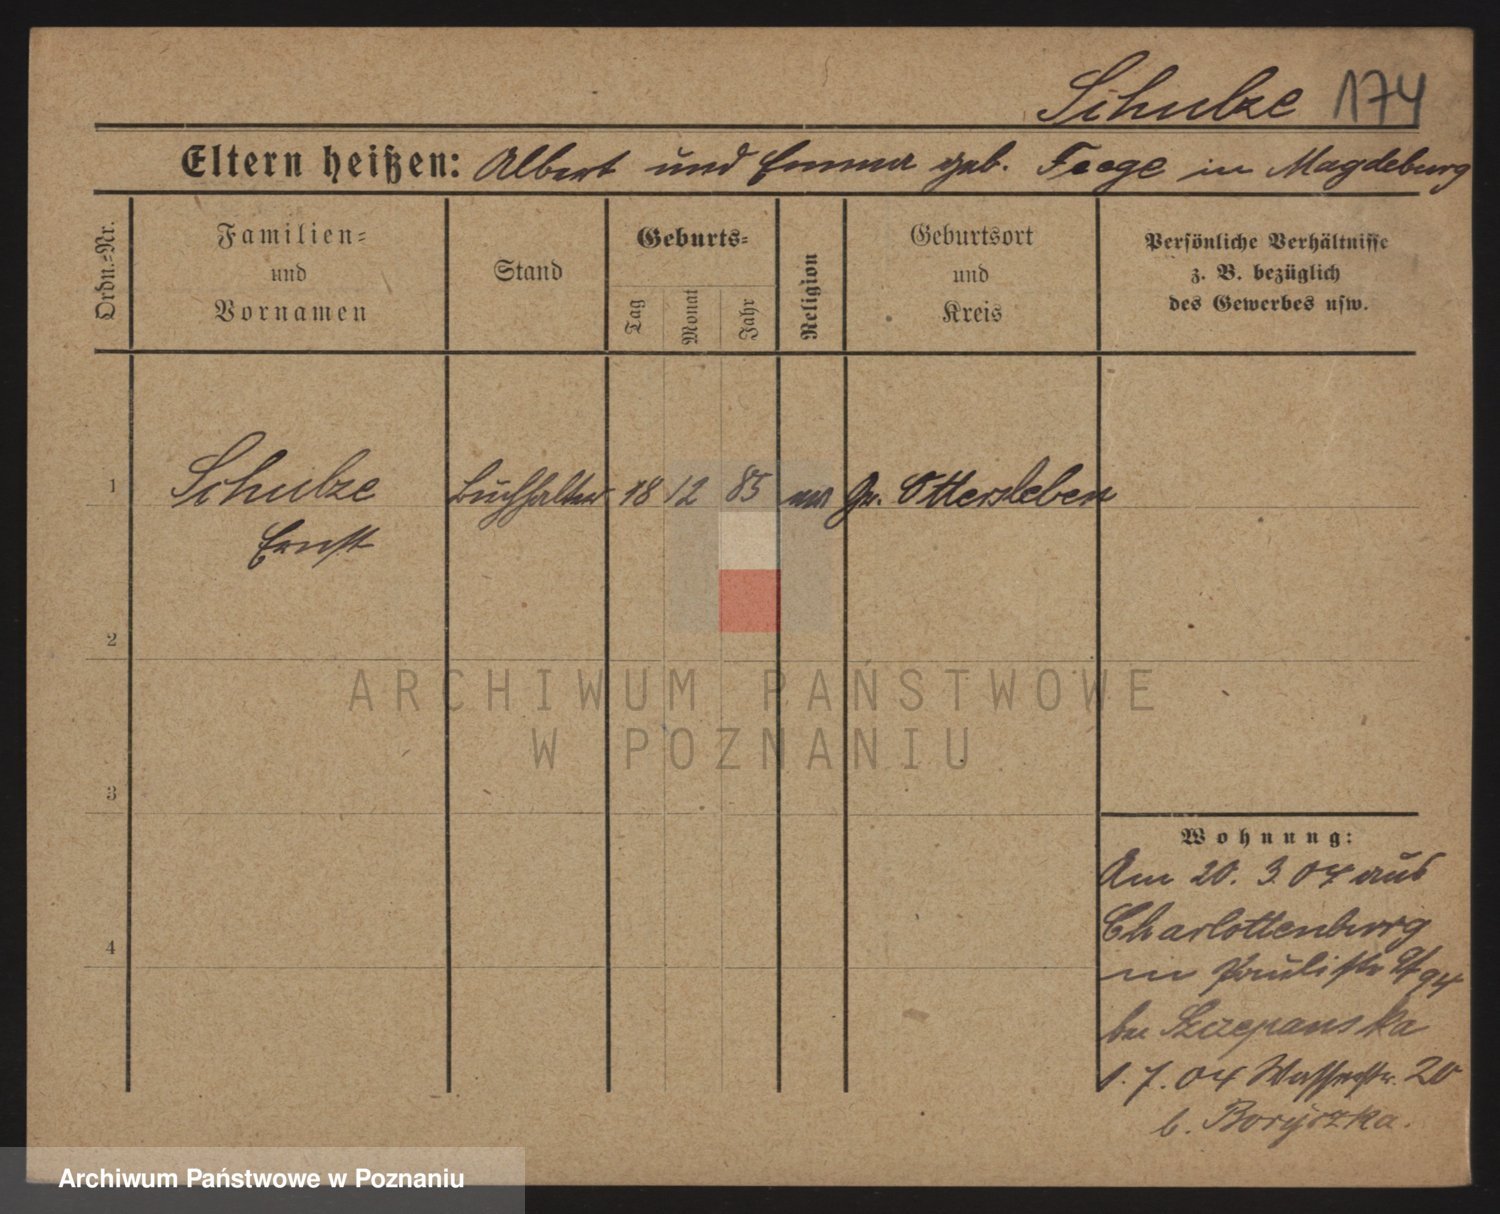 Schulze 174
Eltern heißen: Albert und Emma geb. Feege in Magdeburg
Ordn.-Nr.
Familien-
und
Vornamen
Stand
Geburts-
Tag
Monat
Jahr
Religion
Geburtsort
und
Kreis
Persönliche Verhältnisse
z. B. bezüglich
des Gewerbes usw.
1 Schulze Buchhalter 18 12 85 Gr. Ottersleben
Ernst
2
3
4
ARCHIWUM PAŃSTWOWE
W POZNANIU
Wohnung:
Am 20. 3. 04 aus
Charlottenburg
in Paulistr
bei Szczepanska
1. 7. 04 Wasserstr. 20
b. Boryszka.
Archiwum Państwowe w Poznaniu